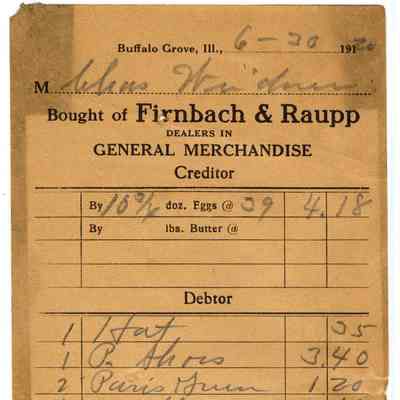 Buffalo Grove, Ill., 6-30 1920
M Chas
Bought of Firnbach & Raupp
DEALERS IN
GENERAL MERCHANDISE
Creditor
By doz. Eggs @ 39 4.18
By lbs. Butter @
Debtor
1 Hat 35
1 P. Shoes 3.40
2 Paris Green 1 20